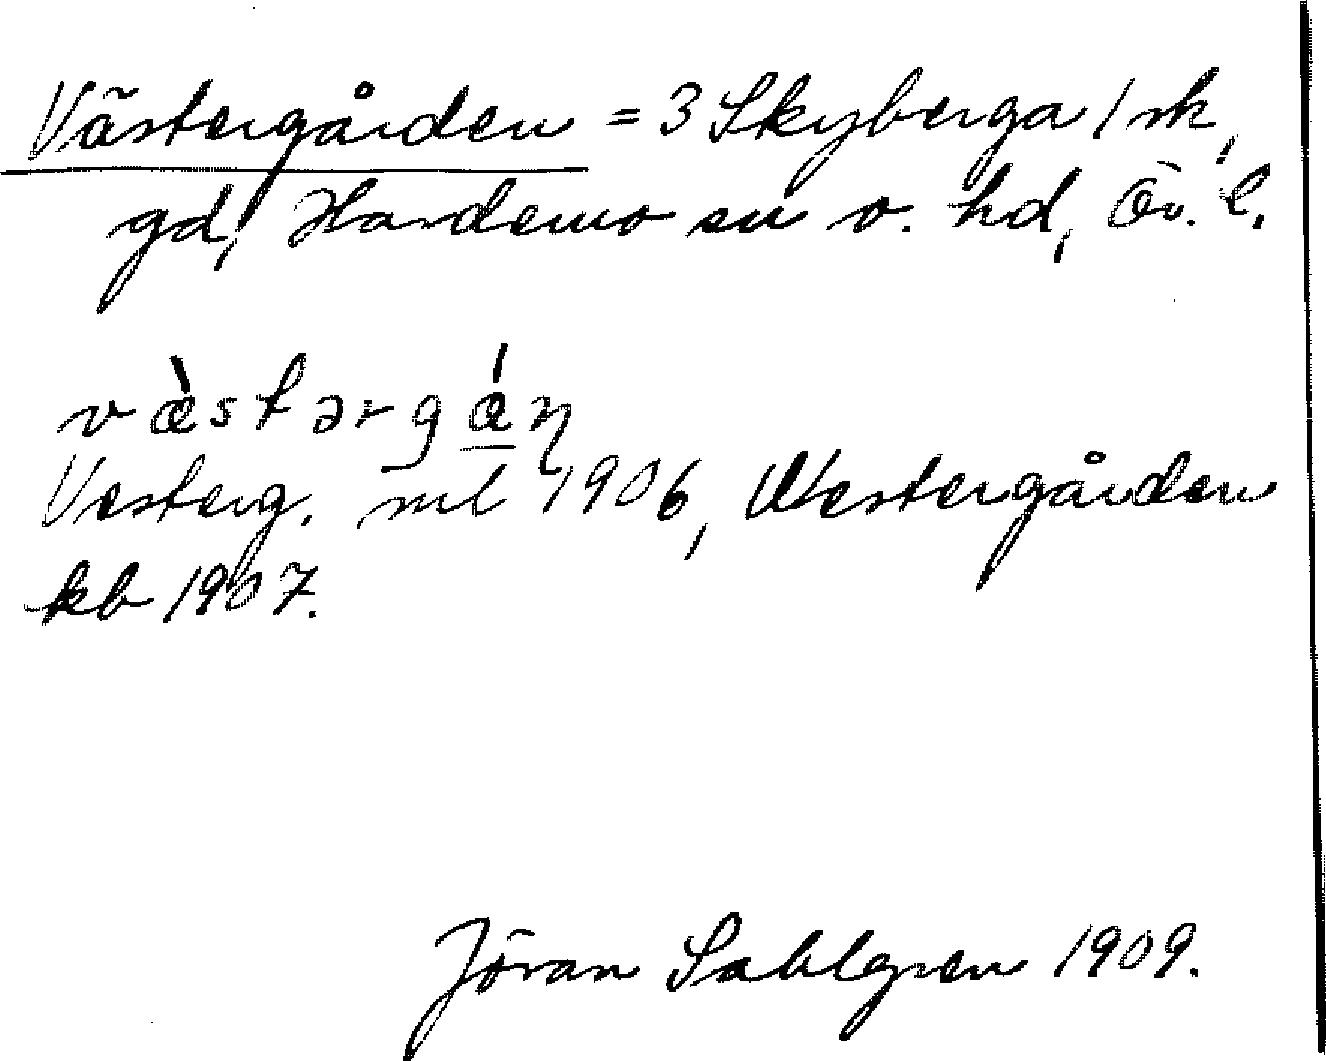 Västergården = 3 Skyberga 1 sk,
gd, Hardemo sn o. hd, Ör. l.
væ̀stərgá̱ɳ
Vesterg. ml 1906, Westergården
kb 1907.
Jöran Sahlgren 1909.